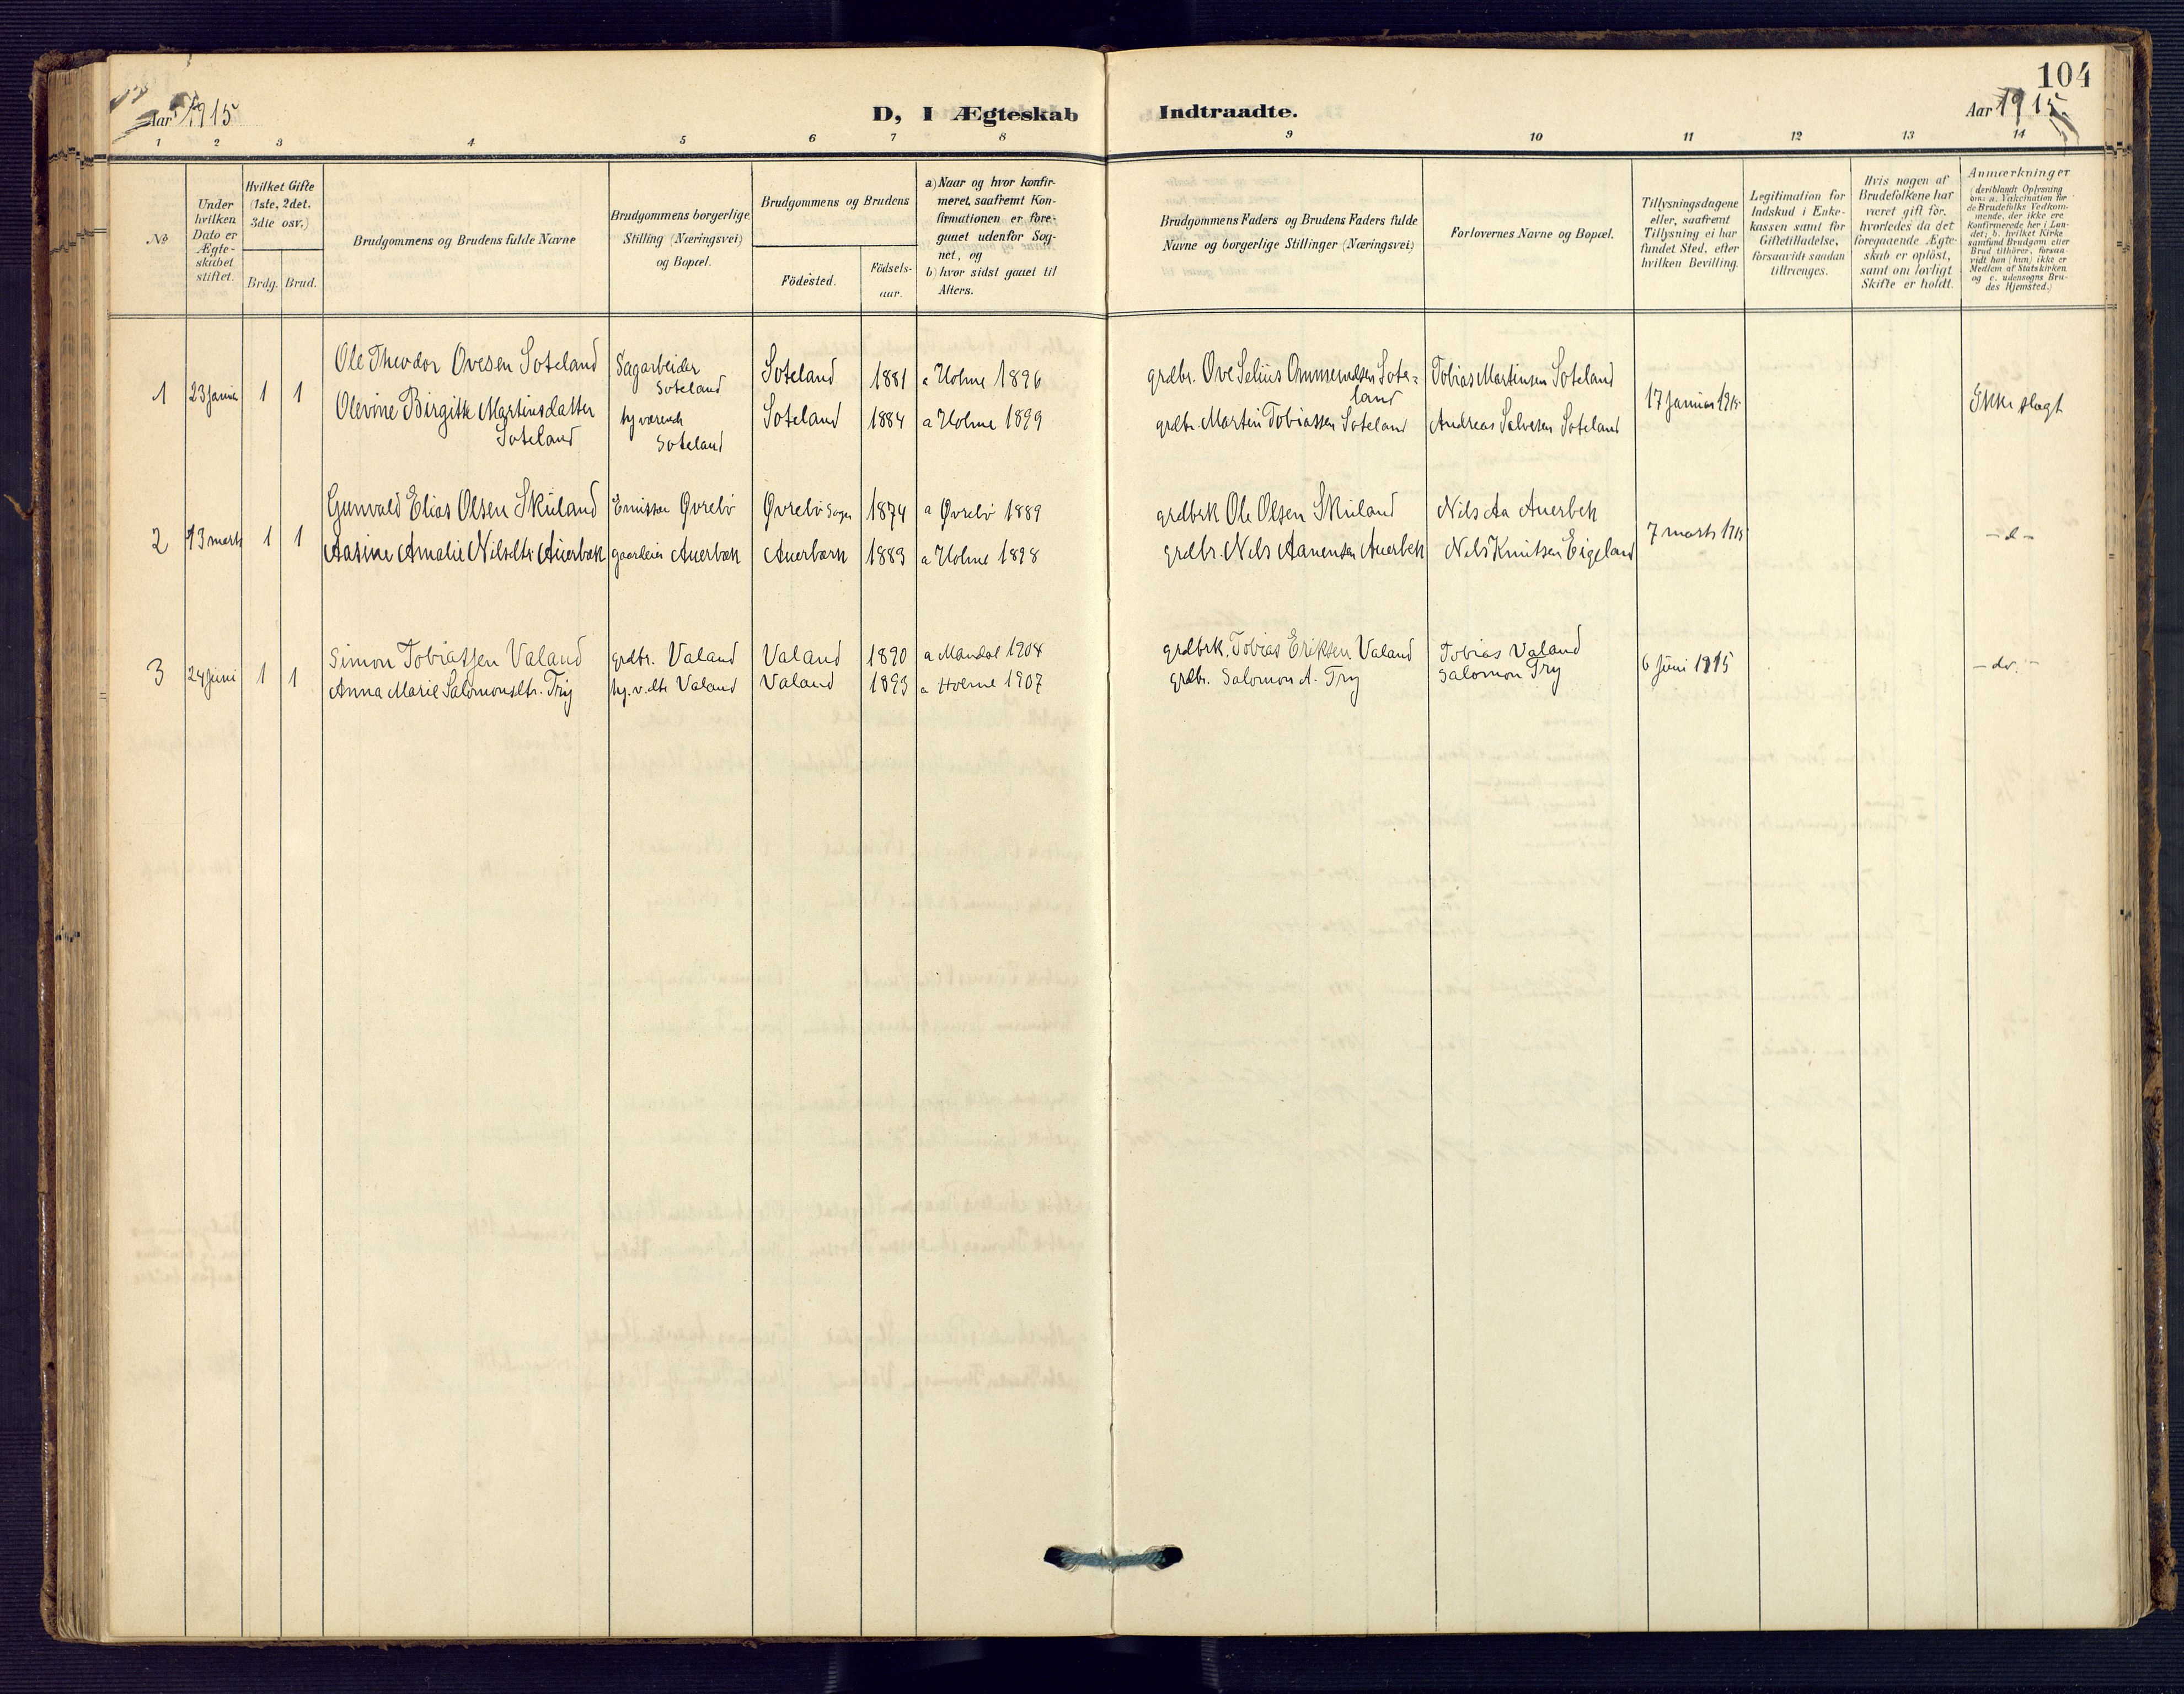 104
Aar 1915
D, I Ægteskab Indtraadte.
Aar 1915
1 2 3 4 5 6 7 8 9 10 11 12 13 14
№
Under hvilken Dato er Ægte-skabet stiftet.
Hvilket Gifte (1ste, 2det, 3die osv.)
Brdg. Brud.
Brudgommens og Brudens fulde Navne
Brudgommens borgerlige Stilling (Næringsvei) og Bopæl.
Brudgommens og Brudens
Födested.
Födsels-aar.
a) Naar og hvor konfir-
meret, saafremt Kon-
firmationen er fore-
gaaet udenfor Sog-
net, og
b) hvor sidst gaaet til
Alters.
Brudgommens Faders og Brudens Faders fulde
Navne og borgerlige Stillinger (Næringsvei)
Forlovernes Navne og Bopæl.
Tillysningsdagene
eller, saafremt
Tillysning ei har
fundet Sted, efter
hvilken Bevilling.
Legitimation for
Indskud i Enke-
kassen samt for
Giftetilladelse,
forsaavidt saadan
tiltrænges.
Hvis nogen af
Brudefolkene har
været gift för,
hvorledes da det
foregaaende Ægte-
skab er oplöst,
samt om lovligt
Skifte er holdt.
Anmærkninger
(deriblandt Oplysning
om: a. Vakcination for
de Brudefolks Vedkom-
mende, der ikke ere
Konfirmerede her i Lan-
det; b. hvilket Kirke
samfund Brudgom eller
Brud tilhörer, forsaa-
vidt han (hun) ikke er
Medlem af Statskirken
og c. udensogns Bru-
des Hjemsted.)
1 23 Januar 1 1
Ole Theodor Ovesen Soteland
Sagarbeider Soteland
Soteland 1881 a Holme 1896
grdbr. Ove Selius Ommundsen Sote-
land
Tobias Martinsen Soteland
Olevine Birgitte Martinsdatter
Soteland
hj. værende
Soteland
Soteland 1884 a Holme 1899
grdbr. Martin Tobiassen Soteland
Andreas Salvesen Soteland
17 Januar 1915
Ikke slægt
2 13 marts 1 1
Gunvald Elias Olsen Skuland
Øvrebö
Øvrebö Sogn 1874 a Øvrebö 1889
grdbrk Ole Olsen Skuland
Nils Aa Auerbek
Aasine Amalie Nilsdtr Auerbæk
Auerbæk
Auerbærk 1883 a Holme 1898
grdbr. Nils Aanensen Auerbek
Nils Knutsen Eigeland
7 marts 1915
-d-
3 24 Juni 1 1
Simon Tobiassen Valand
grdbr. Valand
Valand 1890 a Mandal 1904
grdbrk. Tobias Eriksen Valand
Tobias Valand
Anna Marie Salomonsdtr. Try
hj. v. dtr Valand
Valand 1893 a Holme 1907
grdbr. Salomon A. Try
Salomon Try
6 Juni 1915
-do.-